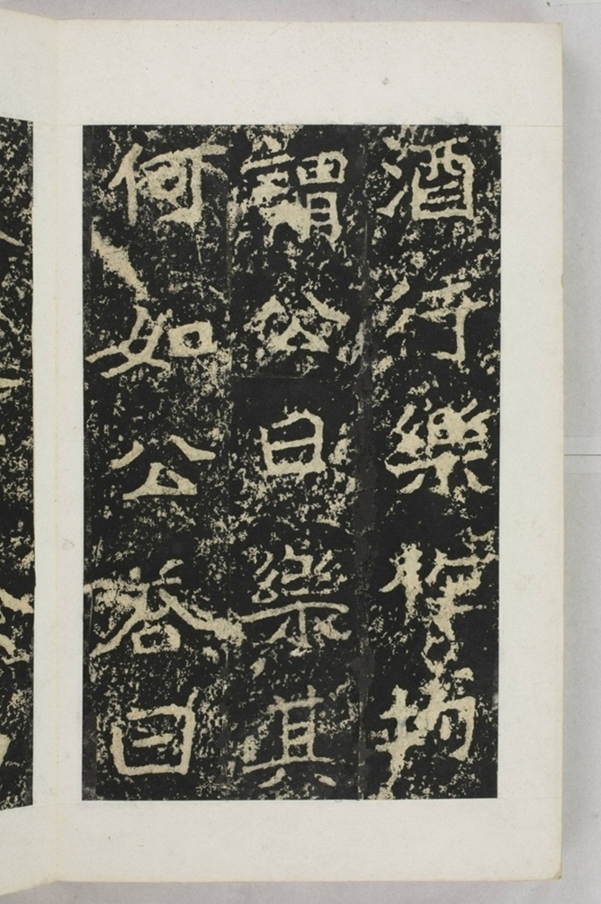 酒行樂
謂公曰樂其
何如公答曰